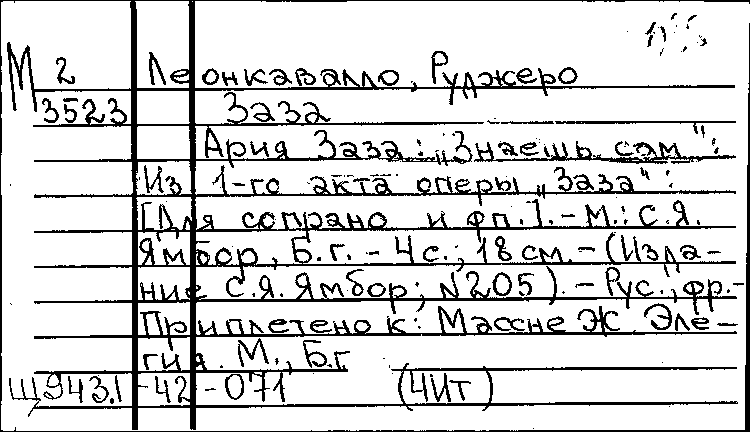 М 2 Леонкавалло, Руджеро
3523 Заза
Ария Заза: „Знаешь сам":
Из 1-го акта оперы „Заза":
[Для сопрано и фп.]. - М.: С.Я.
Ямбор, Б.г. - 4 с.; 18 см. - (Изда-
ние С.Я. Ямбор; N205). - Рус., фр.-
Приплетено к: Массне Ж. Эле-
гия. М., Б.г.
Щ943.1-42-071 (4Ит)